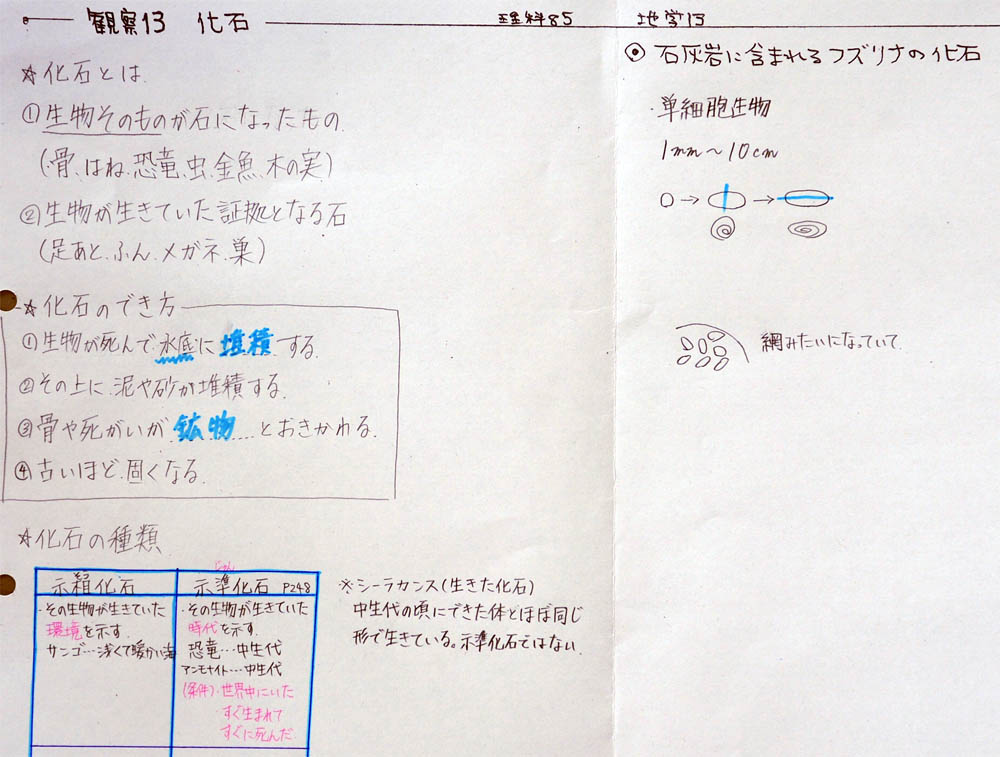 観察13 化石
理科85 地学13
☆化石とは
①生物そのものが石になったもの
(骨、はね、恐竜、虫、金魚、木の実)
②生物が生きていた証拠となる石
(足あと、ふん、メガネ、巣)
☆化石のでき方
①生物が死んで水底に堆積する
②その上に、泥や砂が堆積する
③骨や死がいが鉱物…とおきかわる
④古いほど、固くなる
☆化石の種類
示相化石
・その生物が生きていた
環境を示す
サンゴ…浅くて暖かい海
じゅん
示準化石 P248
・その生物が生きていた
時代を示す
恐竜…中生代
アンモナイト…中生代
(条件)・世界中にいた
・すぐ生まれて
すぐに死んだ
※シーラカンス(生きた化石)
中生代の頃にできた体とほぼ同じ
形で生きている。示準化石ではない
◉石灰岩に含まれるフズリナの化石
・単細胞生物
1mm〜10cm
0→→
網みたいになっていて